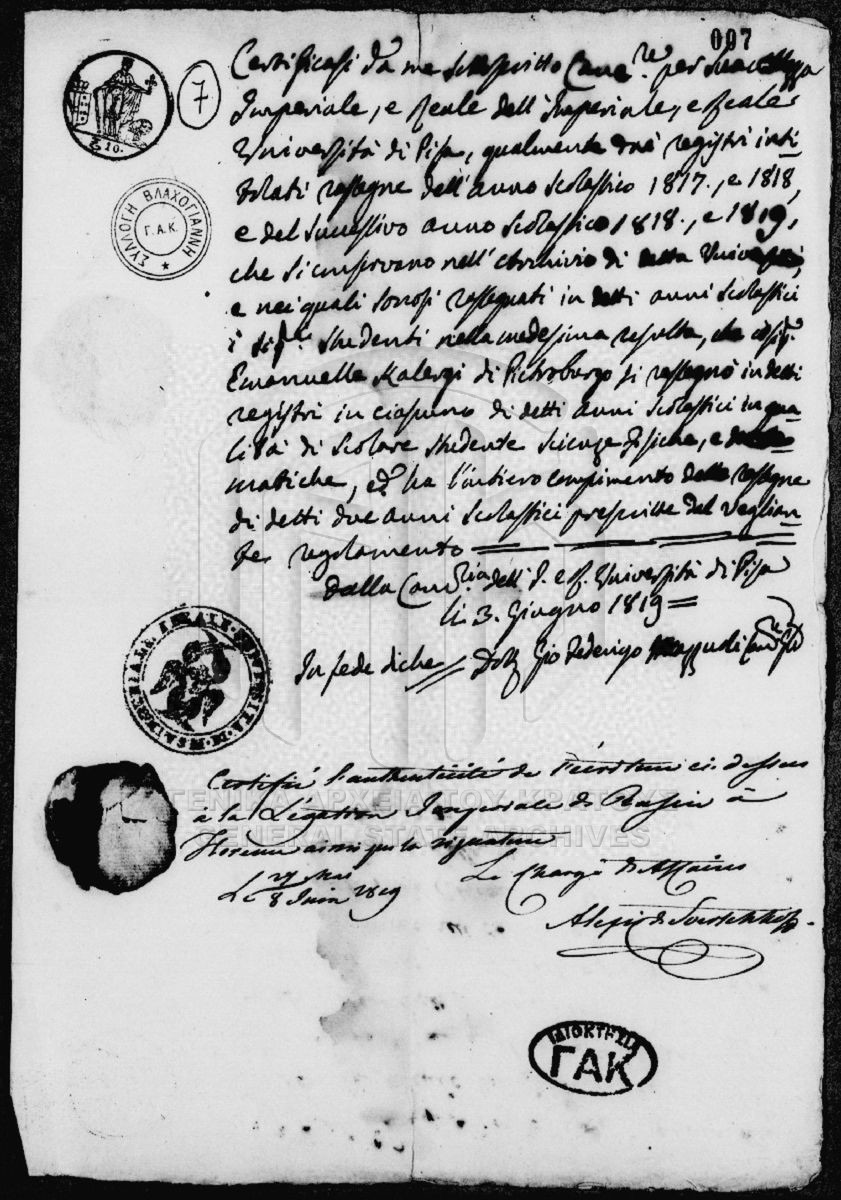 007
7
£ 10.
Certificasi da me Sottoscritto Canc.re per Sua Altezza
Imperiale, e Reale dell'Imperiale, e Reale
Università di Pisa, qualmente dai registri inti-
tolati rassegne dell'anno Scolastico 1817., e 1818,
e del Successivo anno Scolastico 1818., e 1819,
che si conservano nell'Archivio di detta Università,
e nei quali sonosi rassegnati in detti anni Scolastici
i Sig.ri Studenti nella medesima resulta, che il Sig.
Emanuelle Kalergi di Pietroburgo si rassegnò in detti
registri in ciascuno di detti anni Scolastici in qua-
lità di Scolare Studente Scienze Fisiche, e
matiche, ed ha l'intiero compimento delle rassegne
di detti due anni Scolastici prescritte dal veglian-
te regolamento
Dalla Canc.ria dell'I. e R. Università di Pisa
li 3. Giugno 1819
In fede di che Dott Gio Federigo
ΣΥΛΛΟΓΗ ΒΛΑΧΟΓΙΑΝΝΗ
Γ.Α.Κ.
IMPERIALE E REALE UNIVERSITA DI PISA
Certifié l'authenticité de l'écriture ci-dessus
à la Légation Impériale de Russie à
Florence ainsi que la signature
Le 27 Mai / 8 Juin 1819
Le Chargé d'Affaires
Alexis de
ΓΕΝΙΚΑ ΑΡΧΕΙΑ ΤΟΥ ΚΡΑΤΟΥΣ
GENERAL STATE ARCHIVES
ΙΔΙΟΚΤΗΣΙΑ
ΓΑΚ